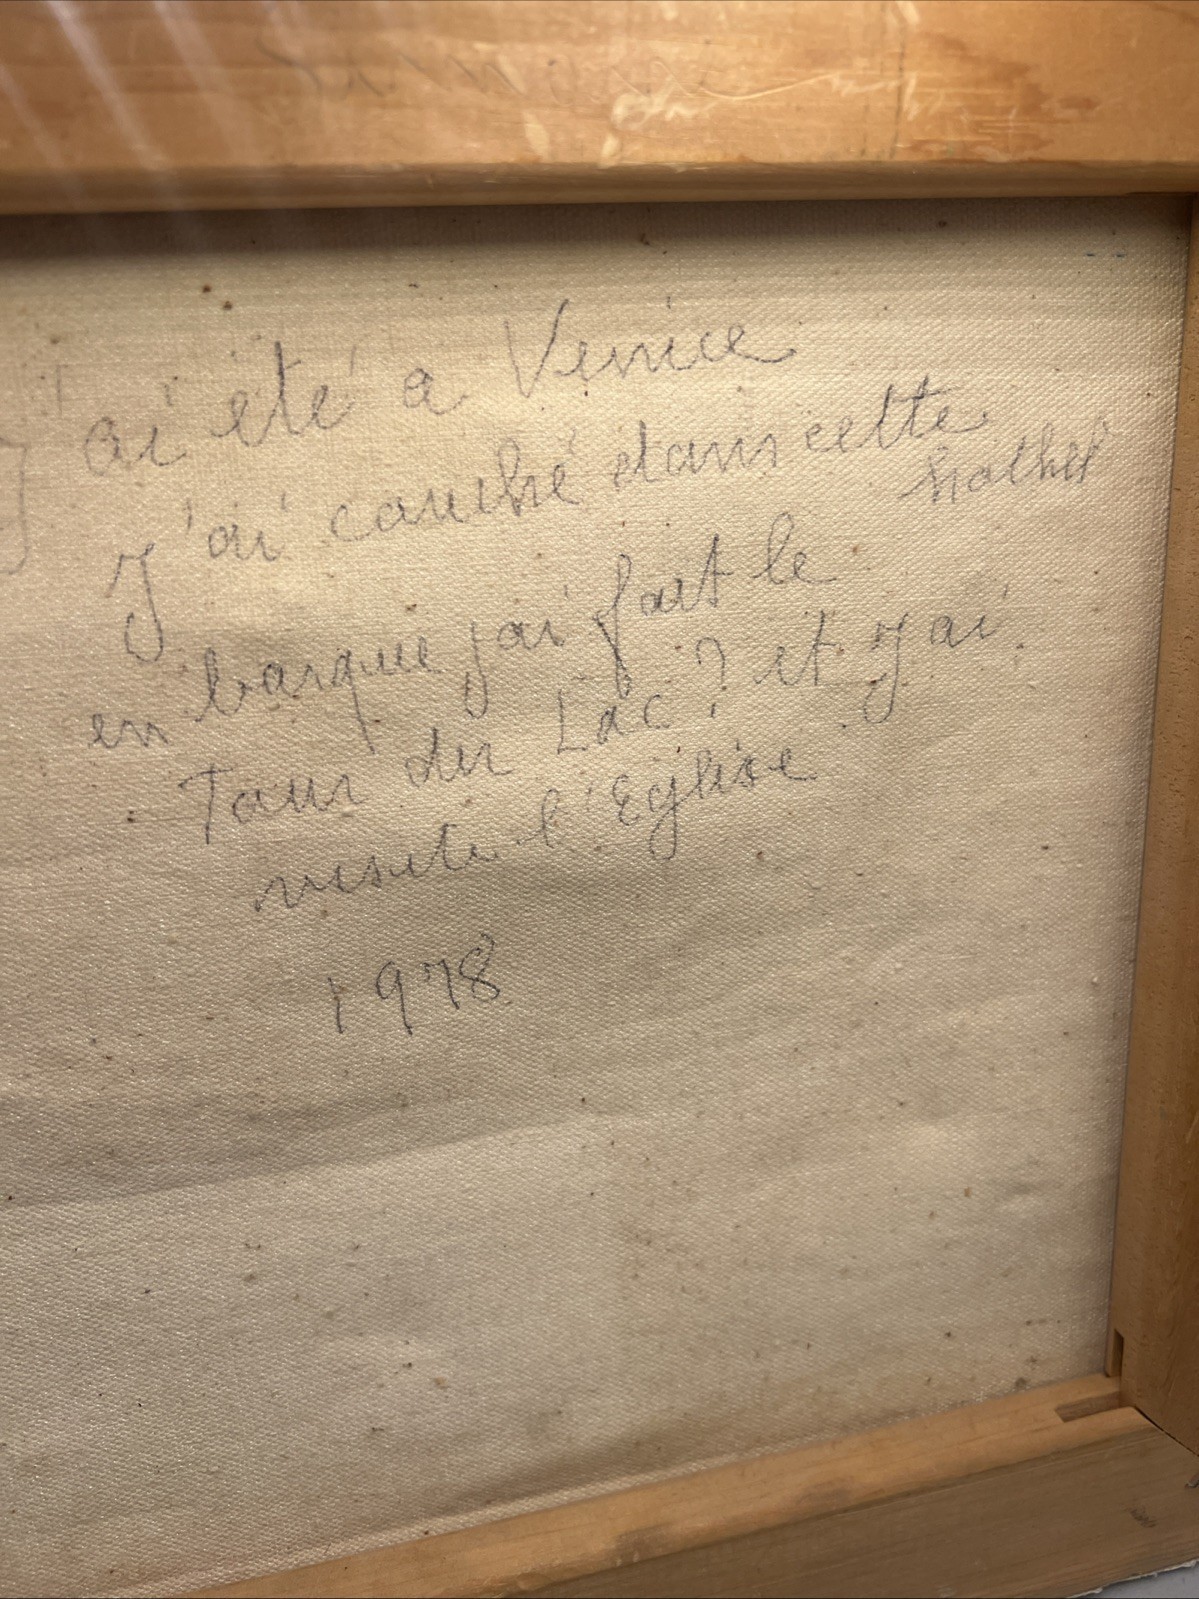 J'ai été a Venice
J'ai couché dans cette
hothel
en barque j'ai fait le
Tour du Lac ? et J'ai
visité l'Eglise
1978